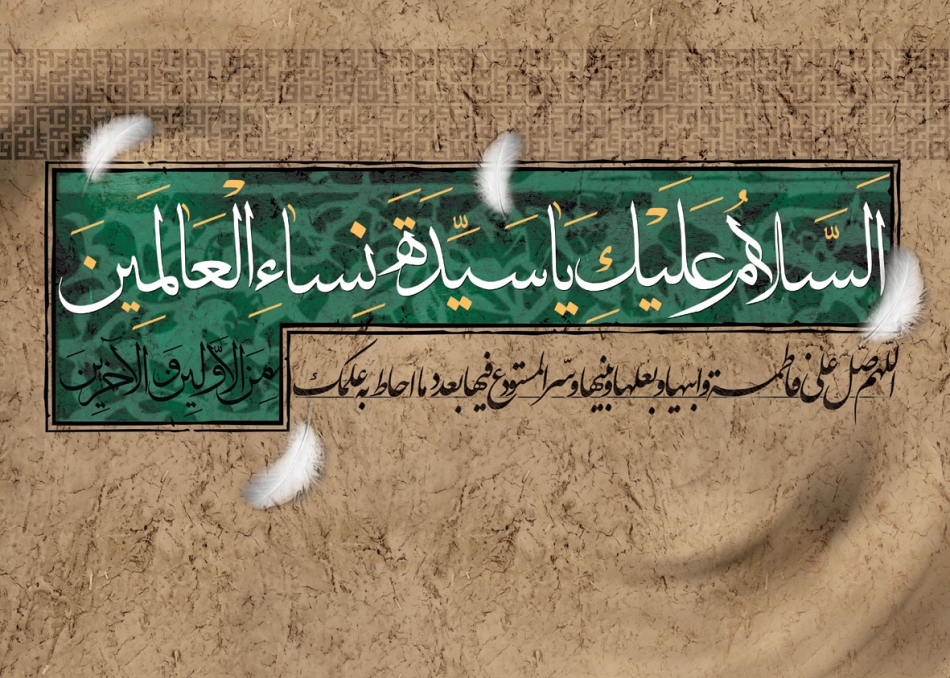 السَّلامُ عَلَيْكِ يا سَيِّدَةَ نِساءِ الْعالَمينَ
مِنَ الْأَوَّلينَ وَ الْآخِرينَ
اللهم صل علی فاطمة و ابیها و بعلها و بنیها و سر المستودع فیها بعدد ما احاط به علمک